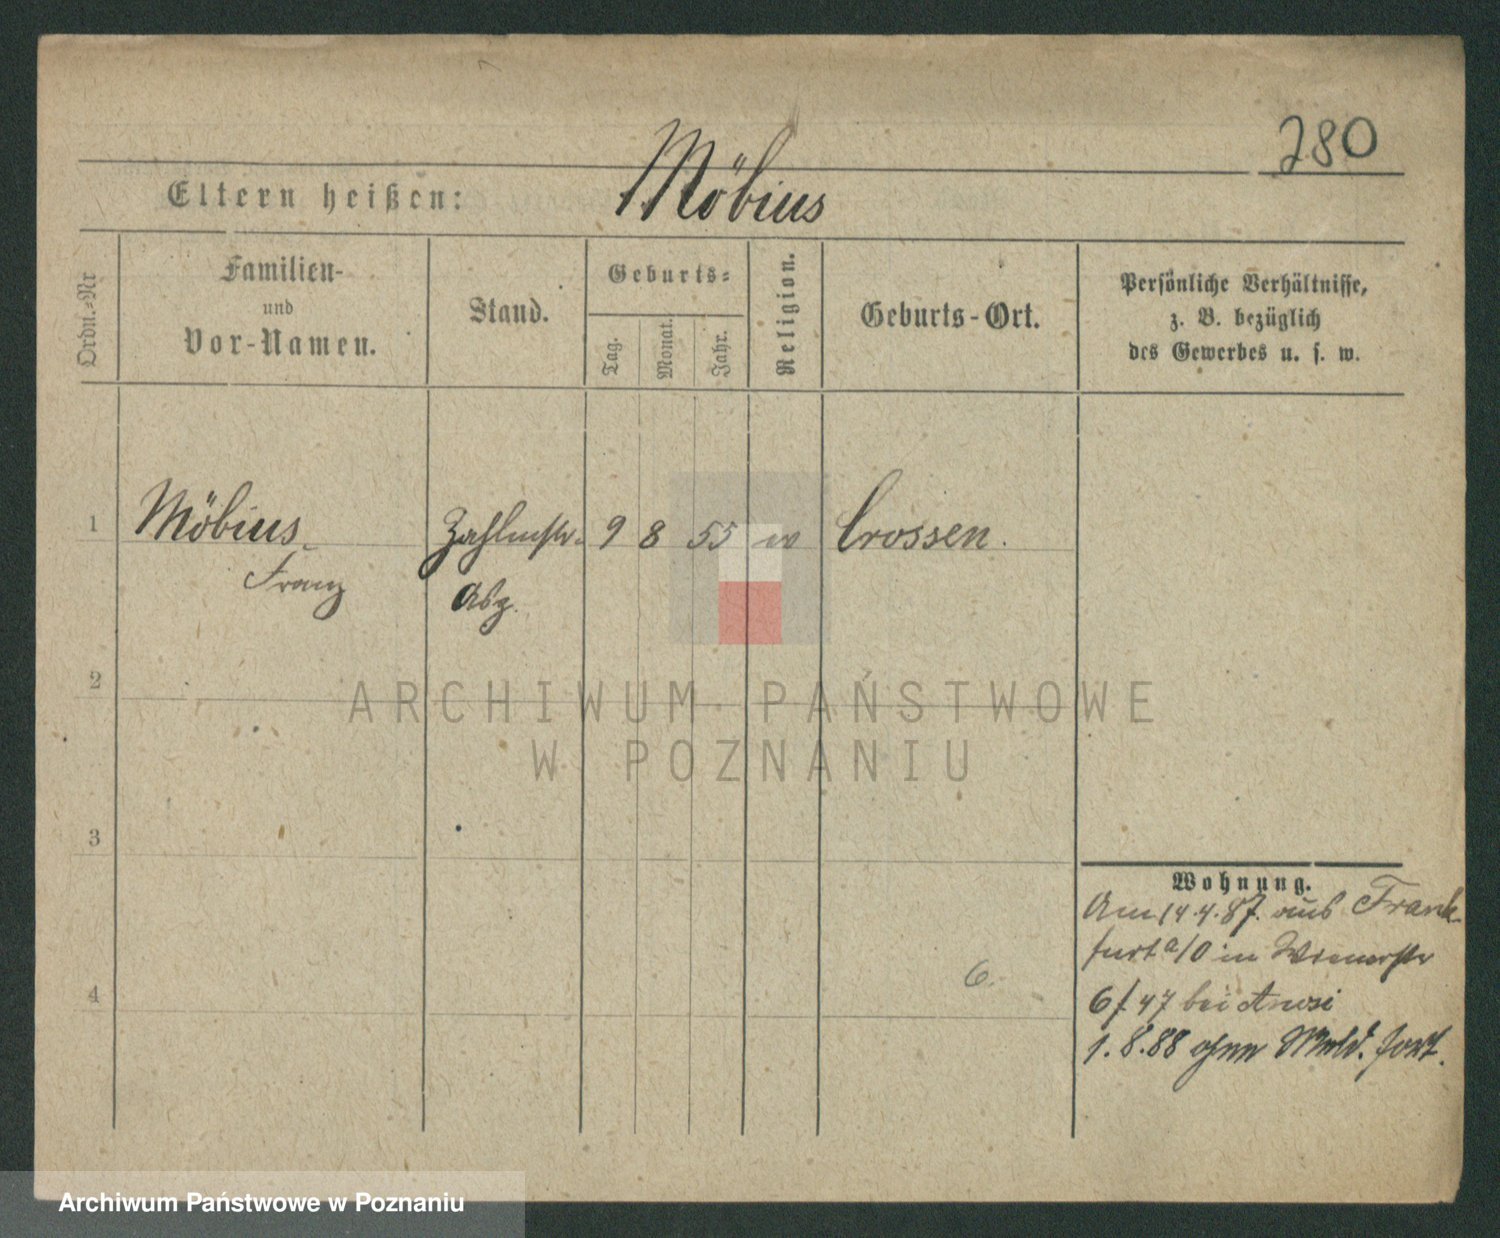 280
Eltern heißen: Möbius
Ordn.-Nr
Familien-
und
Vor-Namen.
Stand.
Geburts-
Tag.
Monat.
Jahr.
Religion.
Geburts-Ort.
Persönliche Verhältnisse,
z. B. bezüglich
des Gewerbes u. s. w.
1 Möbius Zahlmstr. 9 8 55 Crossen.
Franz
2
3
4
6.
Wohnung.
Am 14.4.87. aus Frank-
furt a/O in
6/ 47 bei
1.8.88 ohne Meld. fort.
ARCHIWUM PAŃSTWOWE
W POZNANIU
Archiwum Państwowe w Poznaniu